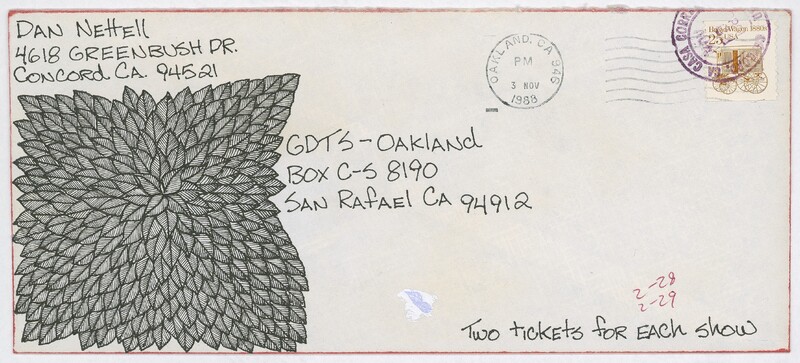 DAN NEttEll
4618 GREENBUSH DR.
CONCORD CA. 94521
OAKLAND, CA 946
PM
3 NOV
1988
Bread Wagon 1880s
25 USA
GDTS-OAKLAND
BOX C-S 8190
SAN RAFAEL CA 94912
2-28
2-29
TWO tickETS FOR EACH SHOW